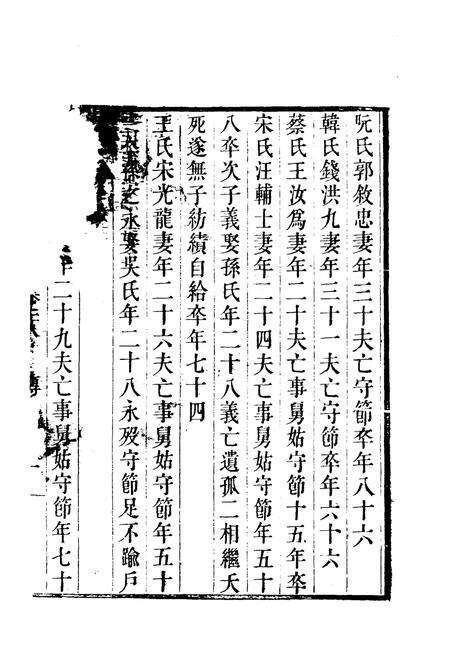 阮氏郭敘忠妻年三十夫亡守節卒年八十六
韓氏錢洪九妻年三十一夫亡守節卒年六十六
蔡氏王汝為妻年二十夫亡事舅姑守節十五年卒
宋氏汪輔士妻年二十四夫亡事舅姑守節年五十
八卒次子義娶孫氏年二十八義亡遺孤二相繼夭
死遂無子紡績自給卒年七十四
王氏宋光龍妻年二十六夫亡事舅姑守節年五十
永娶吳氏年二十八永歿守節足不踰戶
年二十九夫亡事舅姑守節年七十